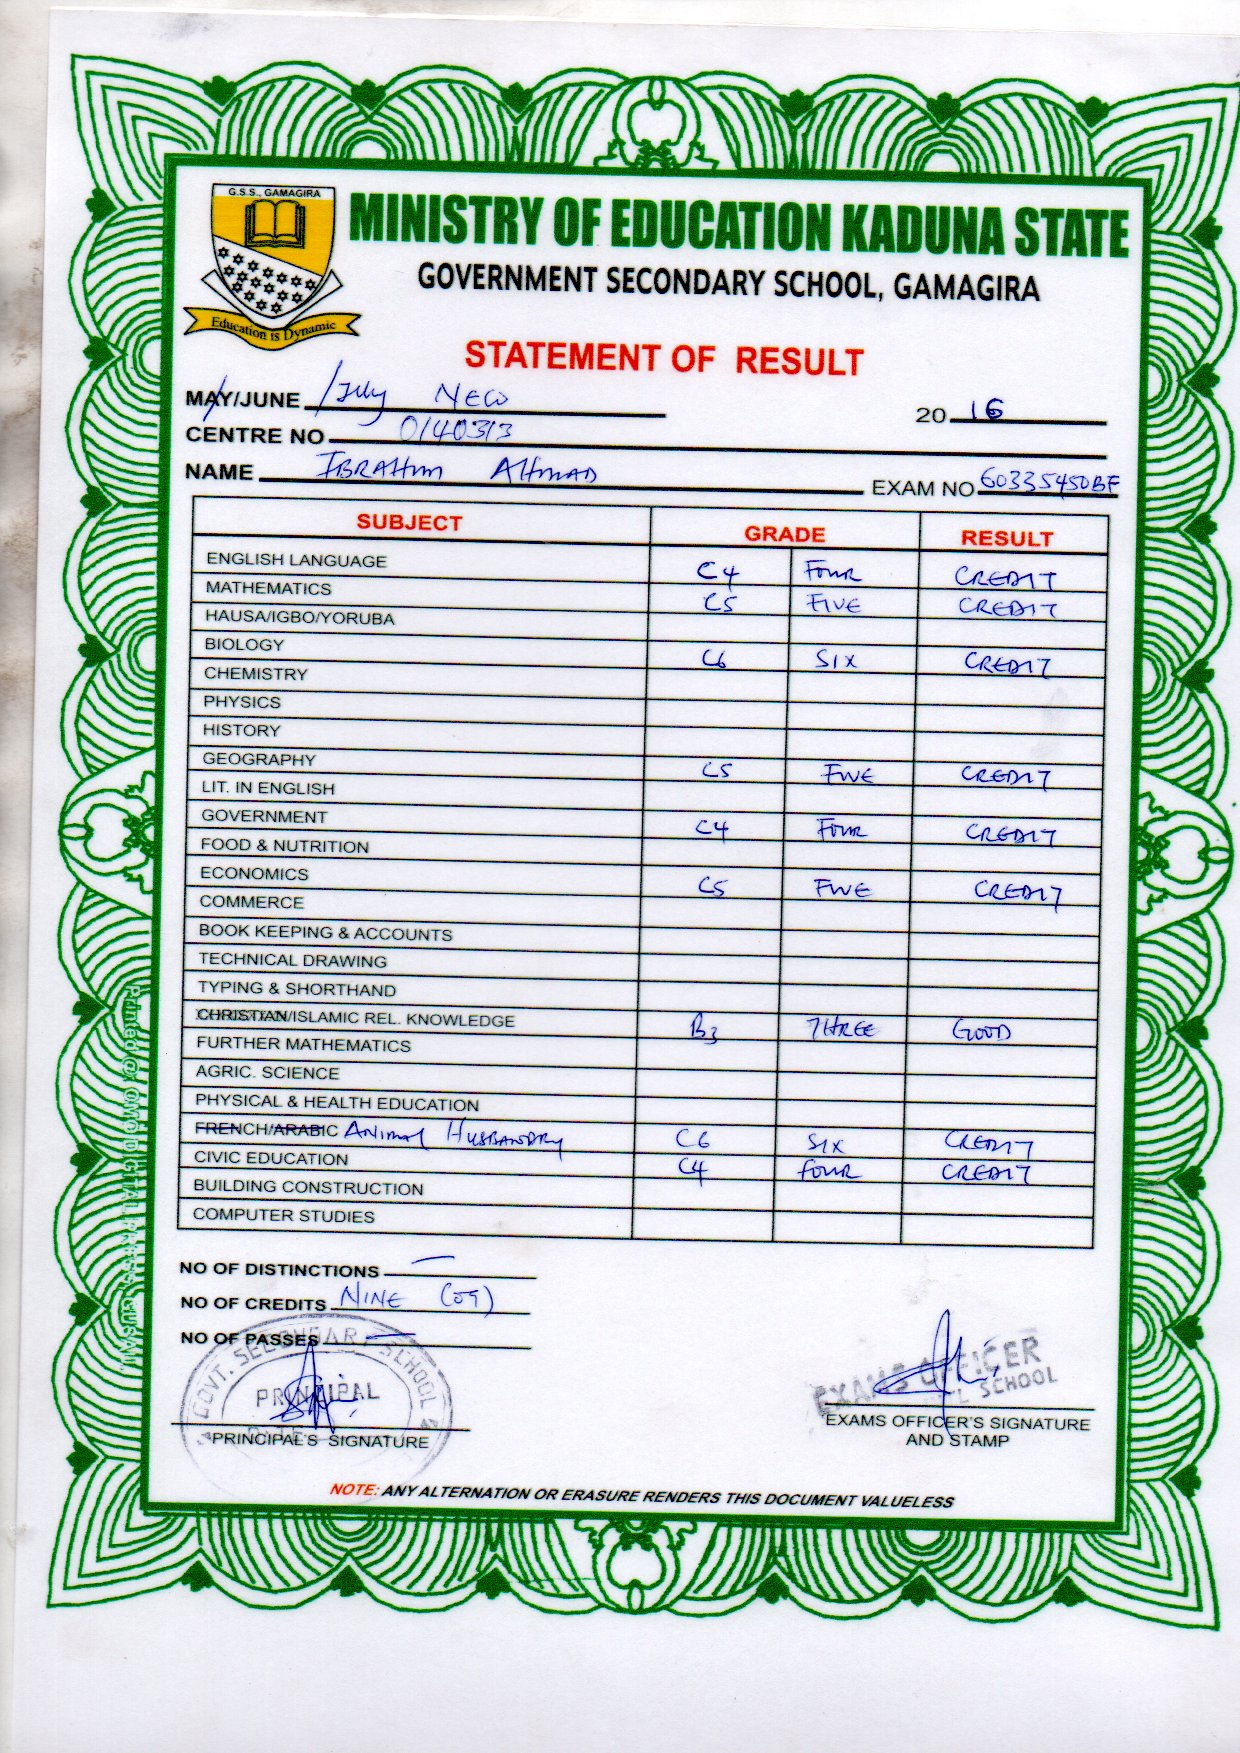 G.S.S., GAMAGIRA
Education is Dynamic
MINISTRY OF EDUCATION KADUNA STATE
GOVERNMENT SECONDARY SCHOOL, GAMAGIRA
STATEMENT OF RESULT
MAY/JUNE /July NECO 2016
CENTRE NO 0140313
NAME IBRAHIM AHMAD EXAM NO 60335450BF
SUBJECT GRADE RESULT
ENGLISH LANGUAGE C4 FOUR CREDIT
MATHEMATICS C5 FIVE CREDIT
HAUSA/IGBO/YORUBA
BIOLOGY C6 SIX CREDIT
CHEMISTRY
PHYSICS
HISTORY
GEOGRAPHY C5 FIVE CREDIT
LIT. IN ENGLISH
GOVERNMENT C4 FOUR CREDIT
FOOD & NUTRITION
ECONOMICS C5 FIVE CREDIT
COMMERCE
BOOK KEEPING & ACCOUNTS
TECHNICAL DRAWING
TYPING & SHORTHAND
CHRISTIAN/ISLAMIC REL. KNOWLEDGE B3 THREE GOOD
FURTHER MATHEMATICS
AGRIC. SCIENCE
PHYSICAL & HEALTH EDUCATION
FRENCH/ARABIC ANIMAL HUSBANDRY C6 SIX CREDIT
CIVIC EDUCATION C4 FOUR CREDIT
BUILDING CONSTRUCTION
COMPUTER STUDIES
NO OF DISTINCTIONS —
NO OF CREDITS NINE (09)
NO OF PASSES —
GOVT. SECONDARY SCHOOL
PRINCIPAL
PRINCIPAL'S SIGNATURE
EXAMS OFFICER
SCHOOL
EXAMS OFFICER'S SIGNATURE
AND STAMP
NOTE: ANY ALTERNATION OR ERASURE RENDERS THIS DOCUMENT VALUELESS